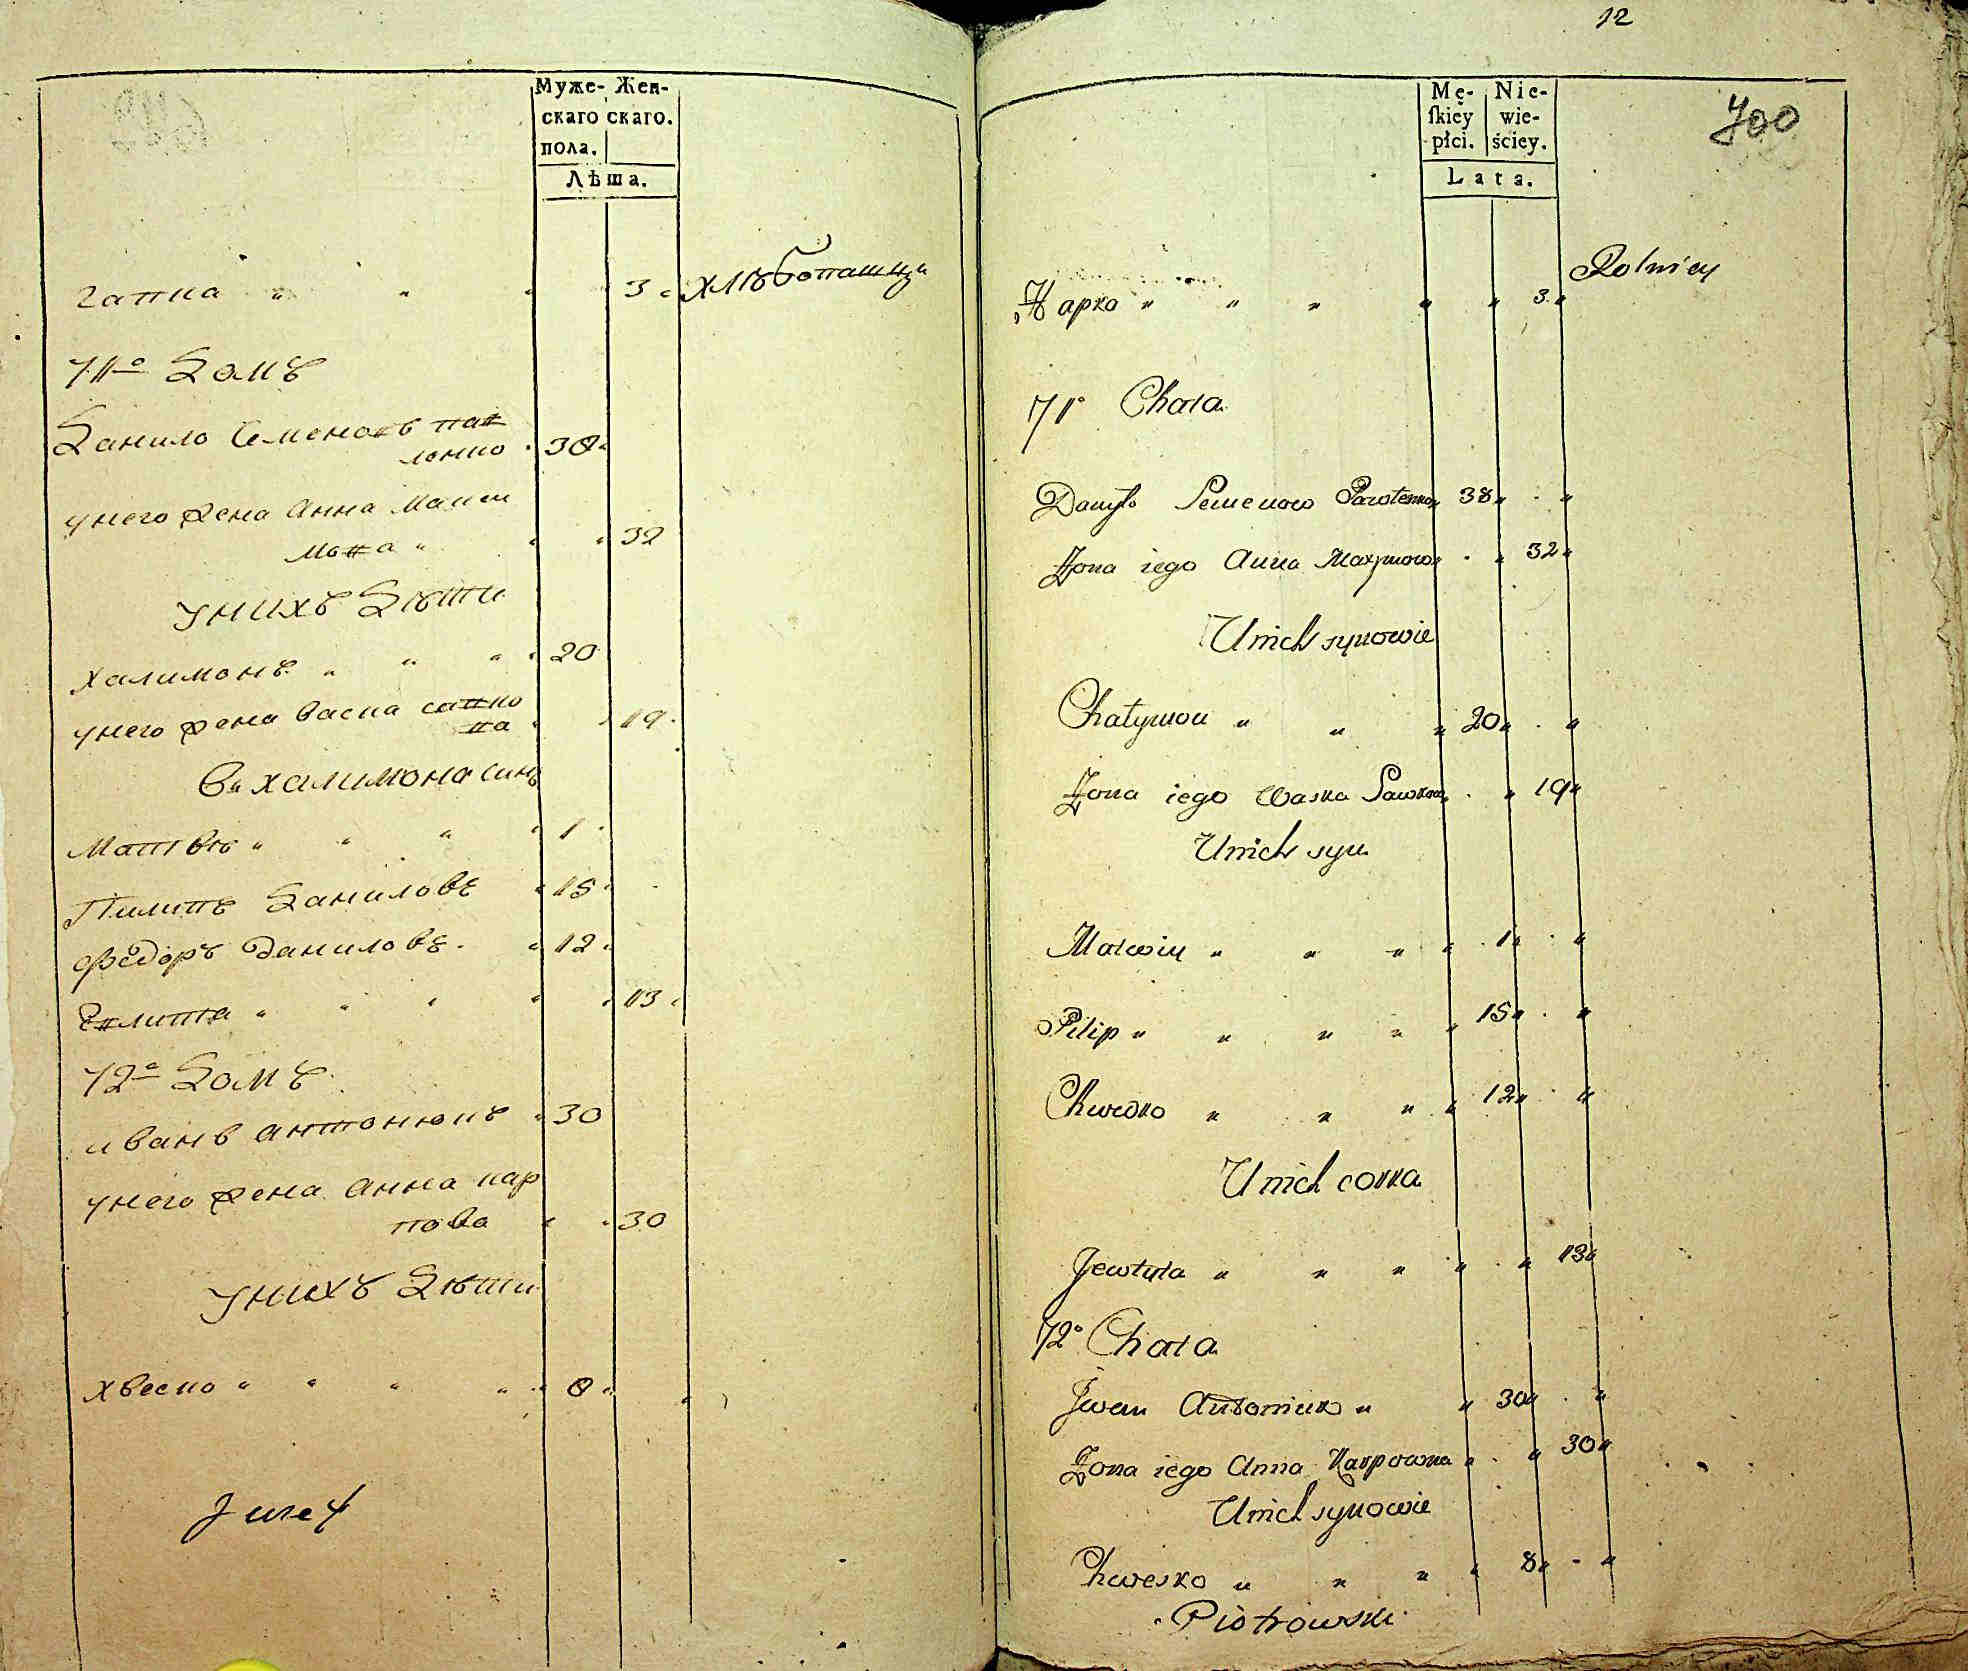 Муже- Жен-
скаго скаго.
пола.
Лѣта.
гапка " " " 3 " хлѣбопашци
71о Домъ
Данило Семеновъ пав
ленко " 38 "
унего жена Анна Макси
мова " " " 32
унихъ дѣти
халимонъ " " " " 20
унего жена Васка савко
ва " " 19 "
Вн халимона синъ
Матвѣ " " " " 1 "
Пилипъ Даниловъ " 15 "
Фєдоръ Даниловъ " " 12 "
Евлита " " " " " 13 "
72о Домъ
иванъ антонюкъ " 30
унего жена анна кар
пова " " 30
унихъ дѣти
хвеско " " " " " 8 "
12
Mę- Nie-
skiéy wie-
płci. ściey.
Lata.
700
Rolnicy
Harko " " " " " 3 "
71° Chata
Danyło Semenow Pawłenko " 38 " . "
Żona iego Anna Maxymowa . " 32 "
Unich synowie
Chałymon " " " 20 " . "
Żona iego Waska Sawkowa . " 19 "
Unich syn
Matwiy " " " " . 1 " . "
Pilip " " " " " 15 " . "
Chwedko " " " " 12 " . "
Unich corka
Jewtyta " " " " . " 13 "
72° Chata
Jwan Antoniuk " " 30 " . "
Żona iego Anna Karpowna " . " 30 "
Unich synowie
Chwesko " " " " 8 " - "
Piotrowski